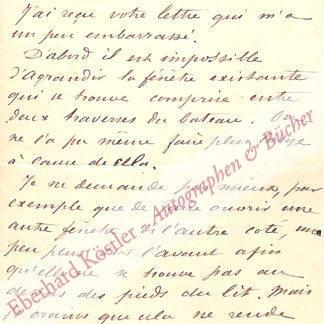 J'ai reçu votre lettre qui m'a
un peu embarrassé.
D'abord il est impossible
d'agrandir la fenêtre existante
qui se trouve comprise entre
deux traverses du bateau. On
ne l'a pu même faire plus
à cause de cela.
Je me demande mieux, par
exemple que de ouvrir une
autre fenêtre l'autre côté, un
peu plus l'avant afin
qu'elle ne se trouve pas au
dessus des pieds du lit. Mais
je crains que cela ne rende
Eberhard Köstler - Autographen & Bücher